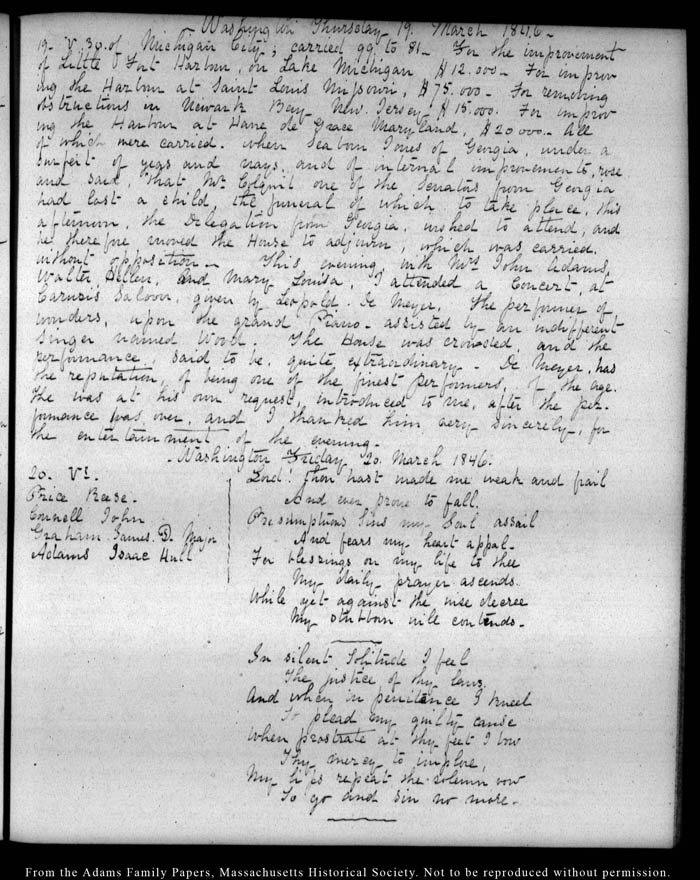 Washington Thursday 19. March 1846-
19. V. 30. of Michigan City; carried 99 to 81- For the improvement
of Little Fort Harbour, on Lake Michigan $12.000- For improv
ing the Harbour at Saint Louis Missouri, $75.000- For removing
obstructions in Newark Bay New Jersey $15.000. For improv
ing the Harbour at Havre de Grace Maryland, $20.000- All
of which were carried. when Seaborn Jones of Georgia, under a
surfeit of yeas and nays, and of internal improvements, rose
and said, that Mr Colquit one of the Senators from Georgia
had lost a child, the funeral of which to take place, this
afternoon, the Delegation from Georgia, wished to attend, and
he therefore moved the House to adjourn, which was carried,
without opposition- This evening, with Mrs John Adams,
Walter Hellen, and Mary Louisa, I attended a Concert, at
Carusis Saloon, given by Leopold. De Meyer, the performer of
wonders, upon the grand Piano- assisted by an indifferent
Singer named Wood. The House was crowded, and the
performance, said to be, quite extraordinary- De Meyer, has
the reputation, of being one of the finest performers, of the age.
He was at his own request, introduced to me, after the per-
formance was over, and I thanked him, very sincerely, for
the entertainment of the evening-
Washington Friday 20. March 1846.
20. VI.
Price Reese.
Connell John
Graham James. D. Major
Adams Isaac Hull
Lord! thou hast made me weak and frail
And ever prone to fall,
Presumptuous Sins my Soul assail
And fears my heart appal-
For blessings on my life to thee
My daily prayer ascends.
While yet against the wise decree
My stubborn will contends-
In silent Solitude I feel
The justice of thy laws,
And when in penitence I kneel
To plead my guilty cause
When prostrate at thy feet I bow
Thy mercy to implore,
My lips repeat the solemn vow
To go and sin no more-
From the Adams Family Papers, Massachusetts Historical Society. Not to be reproduced without permission.